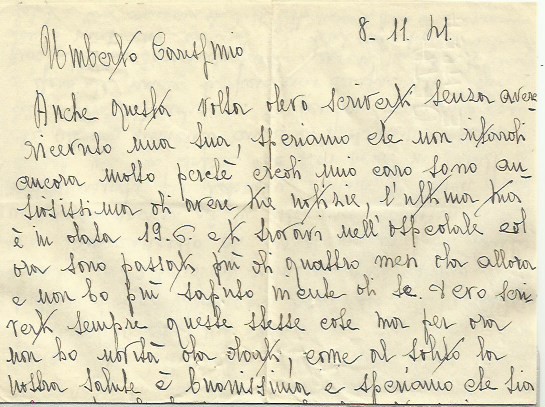 8-11.41.
Umberto Carissimo
Anche questa volta devo scriverti senza avere
ricevuto una sua, speriamo che non ritardi
ancora molto perchè credi mio caro sono an-
siosissima di avere tue notizie, l'ultima tua
è in data 19.6. e ti trovavi nell'ospedale ed
ora sono passati più di quattro mesi da allora
e non ho più saputo niente di te. Devo scri-
verti sempre queste stesse cose ma per ora
non ho novità da darti, come al solito la
nostra salute è buonissima e speriamo che sia